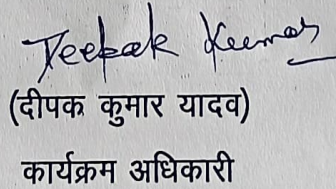 Deepak Kumar
(दीपक कुमार यादव)
कार्यक्रम अधिकारी